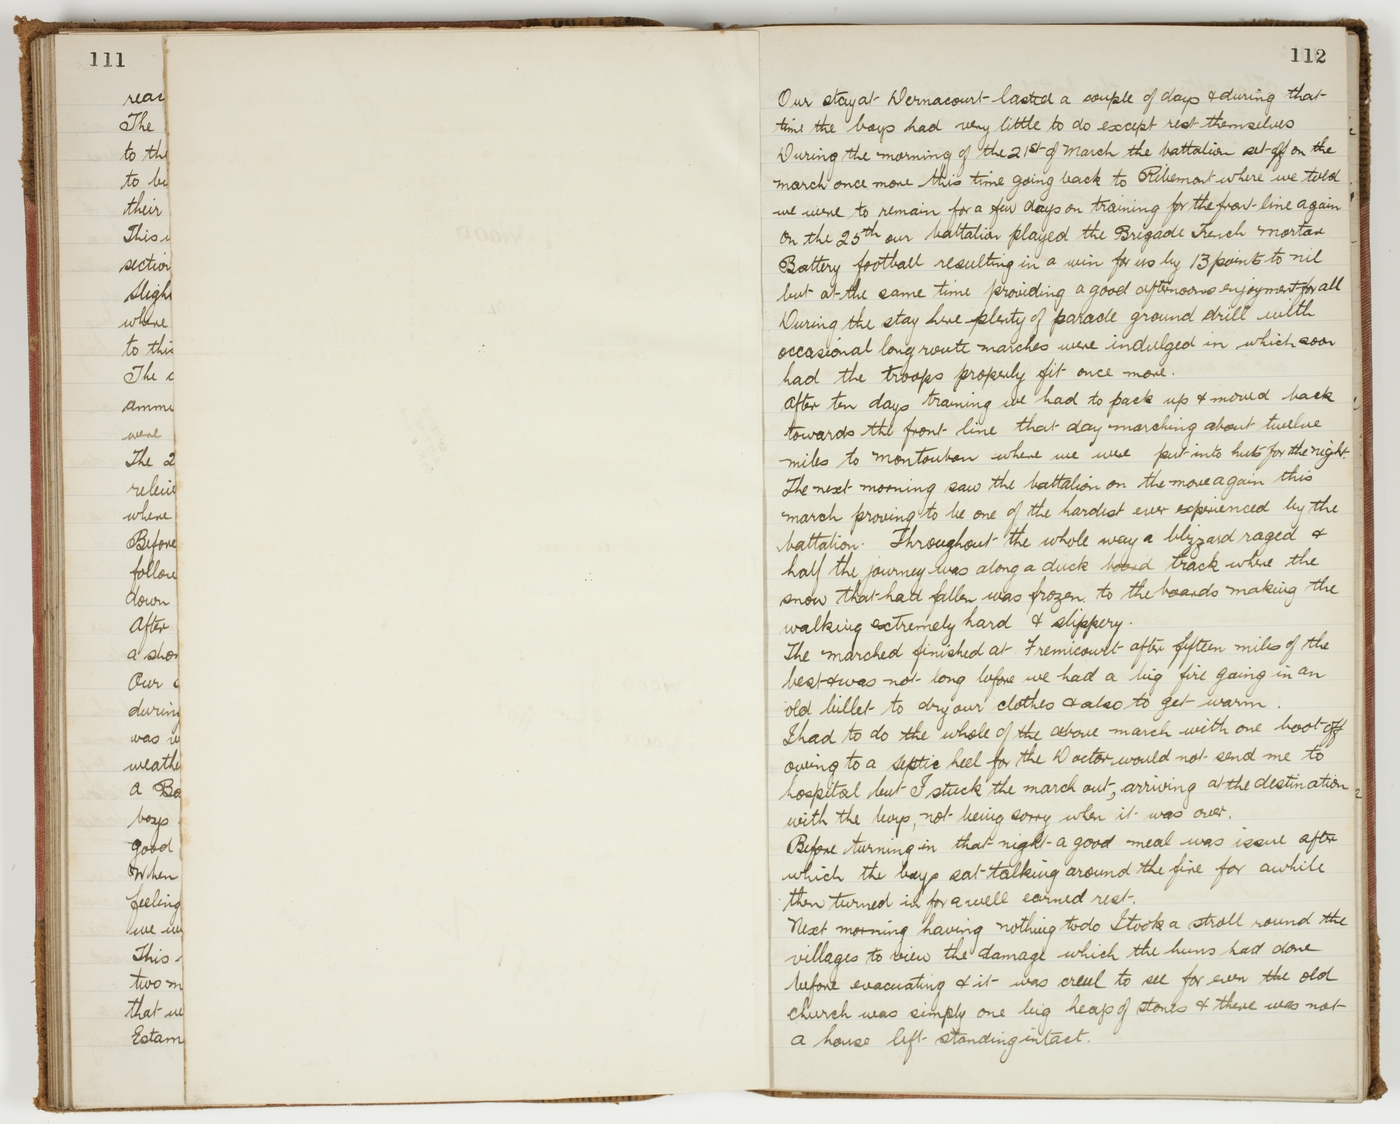 111
rea
The
to th
to b
their
This
section
sligh
where
to this
The
amm
were
The 2
reliev
where
Before
follow
down
After
a sho
Our
during
was
weath
a Ba
boys
good
When
feeling
we
This
two m
that we
Estam
112
Our stay at Dernacourt lasted a couple of days & during that
time the boys had very little to do except rest themselves
During the morning of the 21st of March the battalion set off on the
march once more this time going back to Ribemont where we told
we were to remain for a few days on training for the front line again
On the 25th our battalion played the Brigade Trench Mortar
Battery football resulting in a win for us by 13 points to nil
but at the same time providing a good afternoons enjoyment for all
During the stay here plenty of parade ground drill with
occasional long route marches were indulged in which soon
had the troops properly fit once more.
After ten days training we had to pack up & moved back
towards the front line that day marching about twelve
miles to Montouban where we were put into huts for the night.
The next morning saw the battalion on the move again this
march proving to be one of the hardest ever experienced by the
battalion. Throughout the whole way a blizzard raged &
half the journey was along a duck board track where the
snow that had fallen was frozen to the boards making the
walking extremely hard & slippery.
The marched finished at Fremicourt after fifteen miles of the
best & was not long before we had a big fire going in an
old billet to dry our clothes & also to get warm.
I had to do the whole of the above march with one boot off
owing to a septic heel for the Doctor would not send me to
hospital but I stuck the march out, arriving at the destination
with the boys, not being sorry when it was over.
Before turning in that night a good meal was issue after
which the boys sat talking around the fire for awhile
then turned in for a well earned rest.
Next morning having nothing to do I took a stroll round the
villages to view the damage which the huns had done
before evacuating & it was creul to see for even the old
church was simply one big heap of stones & there was not
a house left standing intact.